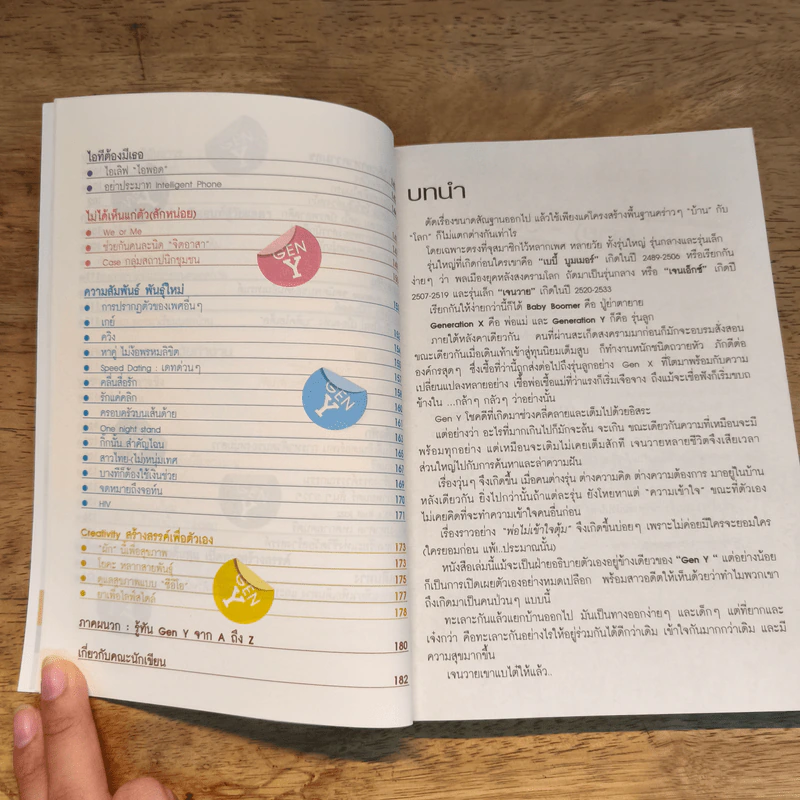 ไอทีต้องมีเธอ
ไอเลิฟ "ไอพอด"
อย่าประมาท Intelligent Phone
ไม่ได้เห็นแก่ตัว(สักหน่อย)
We or Me
ช่วยกันคนละนิด "จิตอาสา"
Case กลุ่มสถาปนิกชุมชน
GEN
Y
ความสัมพันธ์ พันธุ์ใหม่
การปรากฏตัวของเพศอื่นๆ
เกย์
ควิง
หาคู่ ไม่ง้อพรหมลิขิต
Speed Dating : เดทด่วนๆ
คลื่นสื่อรัก
รักแค่คลิก
ครอบครัวบนเส้นด้าย 160
One night stand 161
กิ๊กนั้น สำคัญไฉน
สาวไทย-(ไม่)หนุ่มเทศ 166
บางทีก็ต้องใช้เงินช่วย 167
จดหมายถึงจอหัน 169
170
HIV 171
GEN
Y
Creativity สร้างสรรค์เพื่อตัวเอง 173
"ผัก" นี้เพื่อสุขภาพ 173
โยคะ หลากหลายพันธุ์ 175
ดูแลสุขภาพแบบ "ซีอีโอ" 177
ยาเพื่อไลฟ์สไตล์ 178
GEN
Y
ภาคผนวก : รู้ทัน Gen Y จาก A ถึง Z 180
เกี่ยวกับคณะนักเขียน 182
บทนำ
ตัดเรื่องขนาดสัณฐานออกไป แล้วใช้เพียงแค่โครงสร้างพื้นฐานคร่าวๆ "บ้าน" กับ
"โลก" ก็ไม่แตกต่างกันเท่าไร
โดยเฉพาะตรงที่จุสมาชิกไว้หลากเพศ หลายวัย ทั้งรุ่นใหญ่ รุ่นกลางและรุ่นเล็ก
รุ่นใหญ่ที่เกิดก่อนใครเขาคือ "เบบี้ บูมเมอร์" เกิดในปี 2489-2506 หรือเรียกกัน
ง่ายๆ ว่า พลเมืองยุคหลังสงครามโลก ถัดมาเป็นรุ่นกลาง หรือ "เจนเอ็กซ์" เกิดปี
2507-2519 และรุ่นเล็ก "เจนวาย" เกิดในปี 2520-2533
เรียกกันให้ง่ายกว่านี้ก็ได้ Baby Boomer คือ ปู่ย่าตายาย
Generation X คือ พ่อแม่ และ Generation Y ก็คือ รุ่นลูก
ภายใต้หลังคาเดียวกัน คนที่ผ่านสะเก็ดสงครามมาก่อนก็มักจะอบรมสั่งสอน
ขณะเดียวกันเมื่อเดินเท้าเข้าสู่ทุนนิยมเต็มสูบ ก็ทำงานหนักชนิดถวายหัว ภักดีต่อ
องค์กรสุดๆ ซึ่งเชื้อที่ว่านี้ถูกส่งต่อไปถึงรุ่นลูกอย่าง Gen X ที่โตมาพร้อมกับความ
เปลี่ยนแปลงหลายอย่าง เชื้อพ่อเชื้อแม่ที่ว่าแรงก็เริ่มเจือจาง ถึงแม้จะเชื่อฟังก็เริ่มขบถ
ข้างใน ...กล้าๆ กลัวๆ ว่าอย่างนั้น
Gen Y โชคดีที่เกิดมาช่วงคลี่คลายและเต็มไปด้วยอิสระ
แต่อย่างว่า อะไรที่มากเกินไปก็มักจะล้น จะเกิน ขณะเดียวกันความที่เหมือนจะมี
พร้อมทุกอย่าง แต่เหมือนจะเติมไม่เคยเต็มสักที เจนวายหลายชีวิตจึงเสียเวลา
ส่วนใหญ่ไปกับการค้นหาและล่าความฝัน
เรื่องวุ่นๆ จึงเกิดขึ้น เมื่อคนต่างรุ่น ต่างความคิด ต่างความต้องการ มาอยู่ในบ้าน
หลังเดียวกัน ยิ่งไปกว่านั้นถ้าแต่ละรุ่น ยังโหยหาแต่ "ความเข้าใจ" ขณะที่ตัวเอง
ไม่เคยคิดที่จะทำความเข้าใจคนอื่นก่อน
เรื่องราวอย่าง "พ่อไม่เข้าใจตุ้ม" จึงเกิดขึ้นบ่อยๆ เพราะไม่ค่อยมีใครจะยอมใคร
(ใครยอมก่อน แพ้!..ประมาณนั้น)
หนังสือเล่มนี้แม้จะเป็นฝ่ายอธิบายตัวเองอยู่ข้างเดียวของ "Gen Y" แต่อย่างน้อย
ก็เป็นการเปิดเผยตัวเองอย่างหมดเปลือก พร้อมสาวอดีตให้เห็นด้วยว่าทำไมพวกเขา
ถึงเกิดมาเป็นคนป่วนๆ แบบนี้
ทะเลาะกันแล้วแยกบ้านออกไป มันเป็นทางออกง่ายๆ และเด็กๆ แต่ที่ยากและ
เจ๋งกว่า คือทะเลาะกันอย่างไรให้อยู่ร่วมกันได้ดีกว่าเดิม เข้าใจกันมากกว่าเดิม และมี
ความสุขมากขึ้น
เจนวายเขาแบไต๋ให้แล้ว..